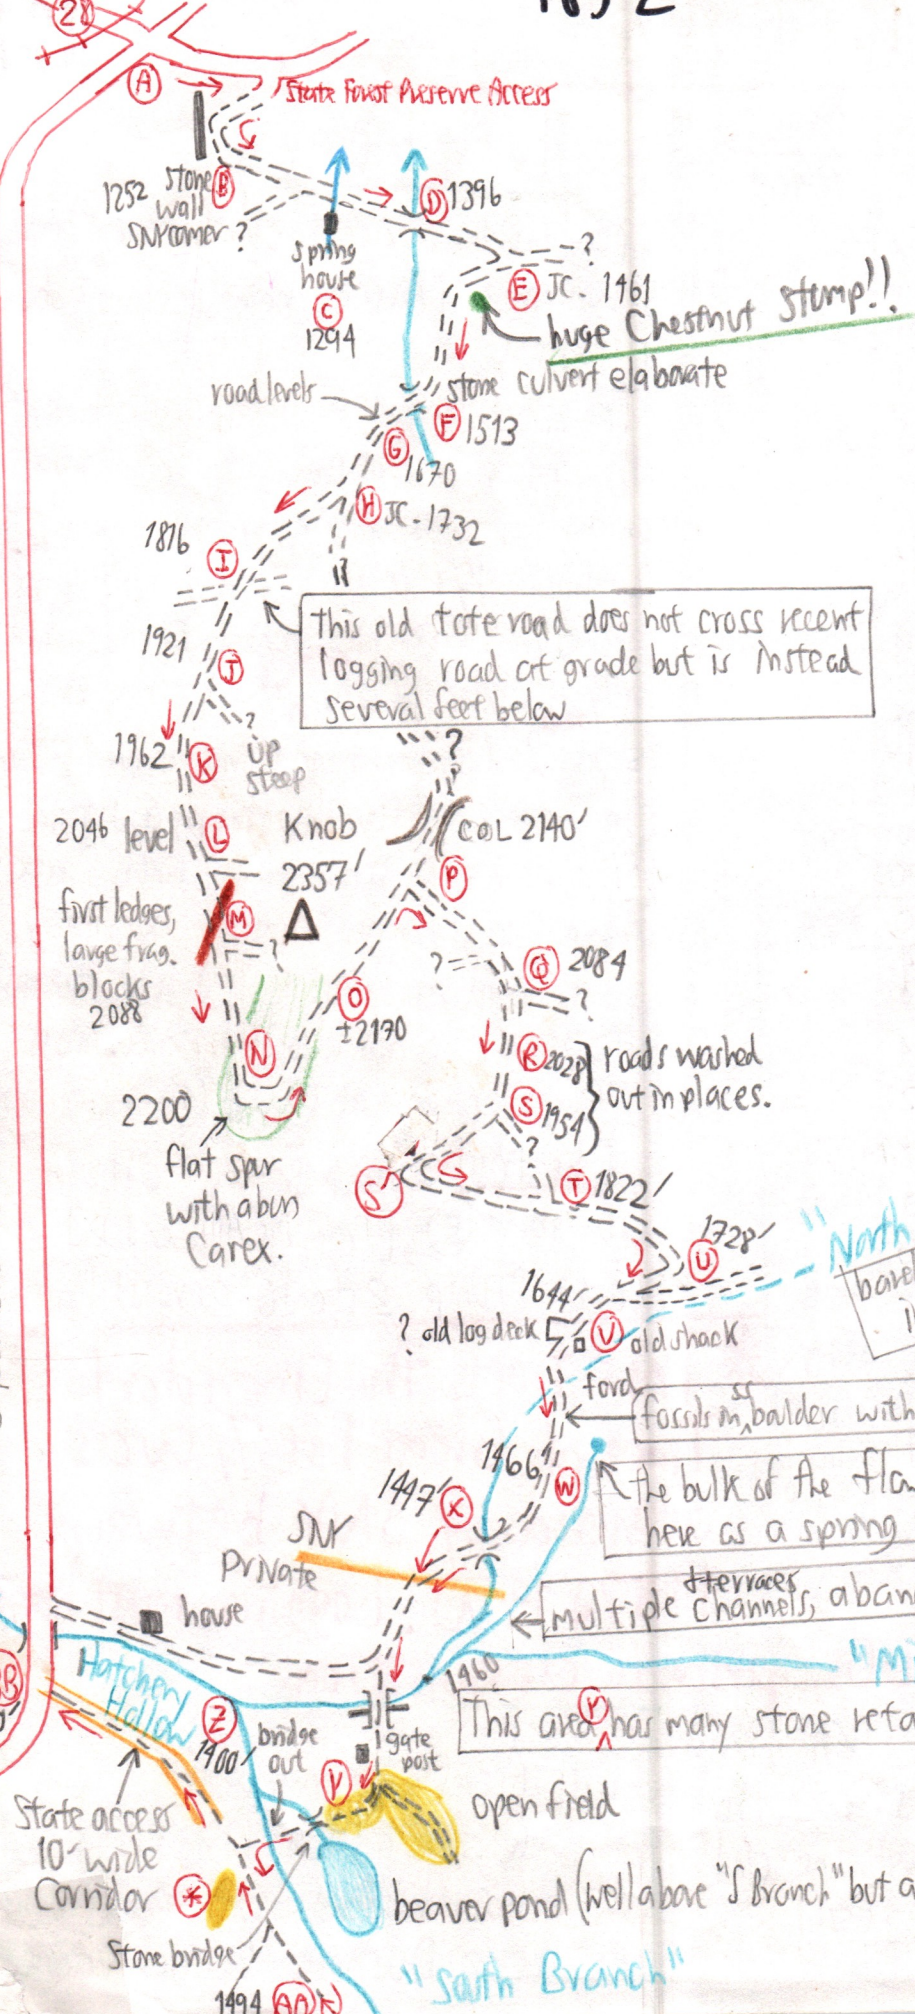 28
A
State Forest Preserve Access
1252
stone
wall
B
SNY corner ?
D 1396
spring
house
C
1294
?
E JC. 1461
huge Chestnut Stump!!
road levels
stone culvert elaborate
F 1513
G
1670
H JC. 1732
1816
I
This old tote road does not cross recent
logging road at grade but is instead
several feet below
1921
J
?
up
steep
1962
K
?
?
2046 level L
Knob
2357'
COL 2140'
P
first ledges,
large frag.
blocks
2088
M
?
?
Q 2084
?
O
±2170
N
R 2028
S 1954
roads washed
out in places.
2200
flat spur
with abun
Carex.
?
S'
T 1822'
1728'
U
"North
1644'
? old log deck
V old shack
bare
ford
fossils in ss bolder with
1466'
W
1447'
X
the bulk of the
here as a spring
SNY
Private
multiple channels, terraces
house
1460
"M
Hatchery
Hollow
BB
Z
1400'
bridge
out
gate
post
Y
This area has many stone
r
State access
10' wide
Corridor
*
open field
beaver pond (well above "S Branch" but a
Stone bridge
"South Branch"
1494 AA